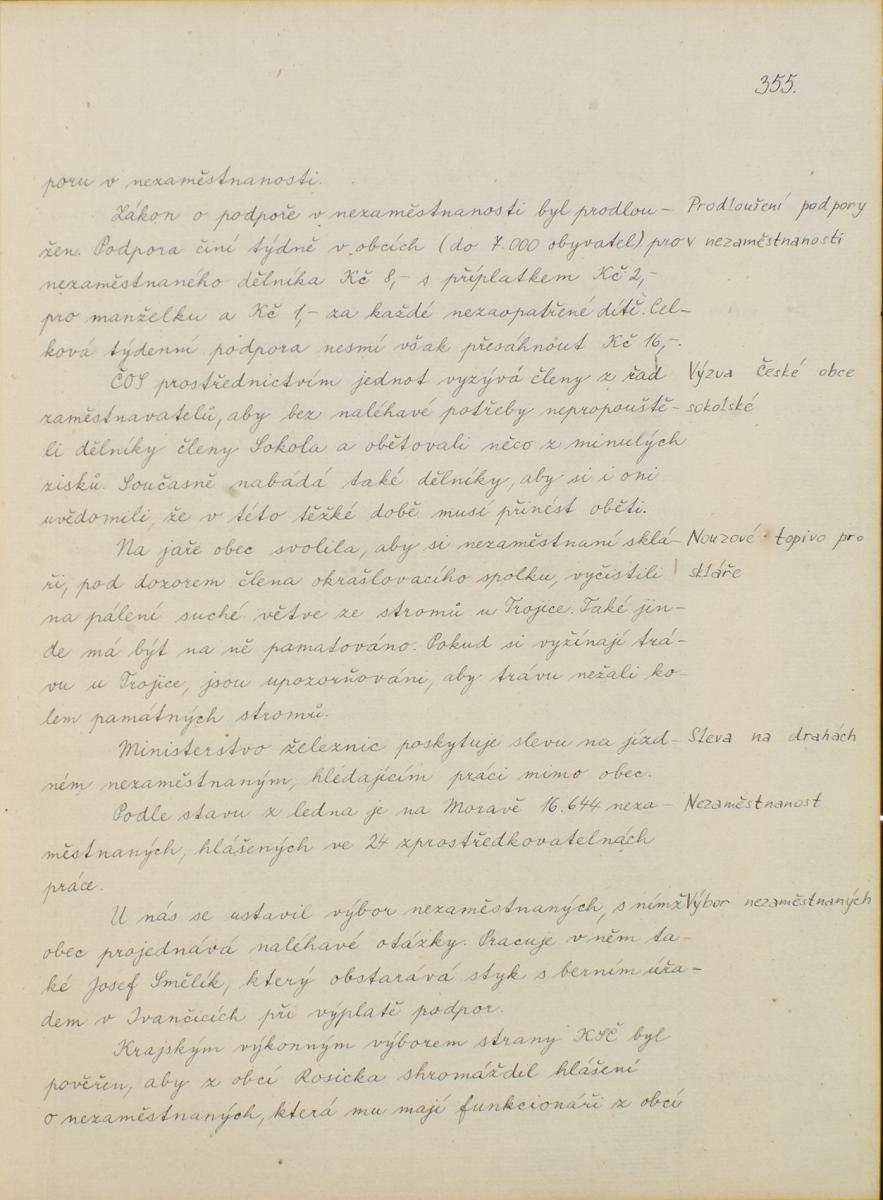 355.
poru v nezaměstnanosti.
Zákon o podpoře v nezaměstnanosti byl prodlou- Prodloužení podpory
žen. Podpora činí týdně v obcích (do 7.000 obyvatel) pro v nezaměstnanosti
nezaměstnaného dělníka Kč 8,- s příplatkem Kč 2,-
pro manželku a Kč 1,- za každé nezaopatřené dítě. Cel-
ková týdenní podpora nesmí však přesáhnout Kč 16,-.
ČOS prostřednictvím jednot vyzývá členy z řad Výzva České obce
zaměstnavatelů, aby bez naléhavé potřeby nepropouště- sokolské
li dělníky členy Sokola a obětovali něco z minulých
zisků. Současně nabádá také dělníky, aby si i oni
uvědomili, že v této těžké době musí přinést oběti.
Na jaře obec svolila, aby si nezaměstnaní sklá- Nouzové topivo pro
ři, pod dozorem člena okrašlovacího spolku, vyčistili skláře
na pálení suché větve ze stromů u Trojice. Také jin-
de má být na ně pamatováno. Pokud si vyžínají trá-
vu u Trojice, jsou upozorňováni, aby trávu nežali ko-
lem památných stromů.
Ministerstvo železnic poskytuje slevu na jízd- Sleva na drahách
ném nezaměstnaným, hledajícím práci mimo obec.
Podle stavu z ledna je na Moravě 16.644 neza- Nezaměstnanost
městnaných, hlášených ve 24 zprostředkovatelnách
práce.
U nás se ustavil výbor nezaměstnaných, s nímž Výbor nezaměstnaných
obec projednává naléhavé otázky. Pracuje v něm ta-
ké Josef Smělík, který obstarává styk s berním úřa-
dem v Ivančicích při výplatě podpor.
Krajským výkonným výborem strany KSČ byl
pověřen, aby z obcí Rosicka shromáždil hlášení
o nezaměstnaných, která mu mají funkcionáři z obcí